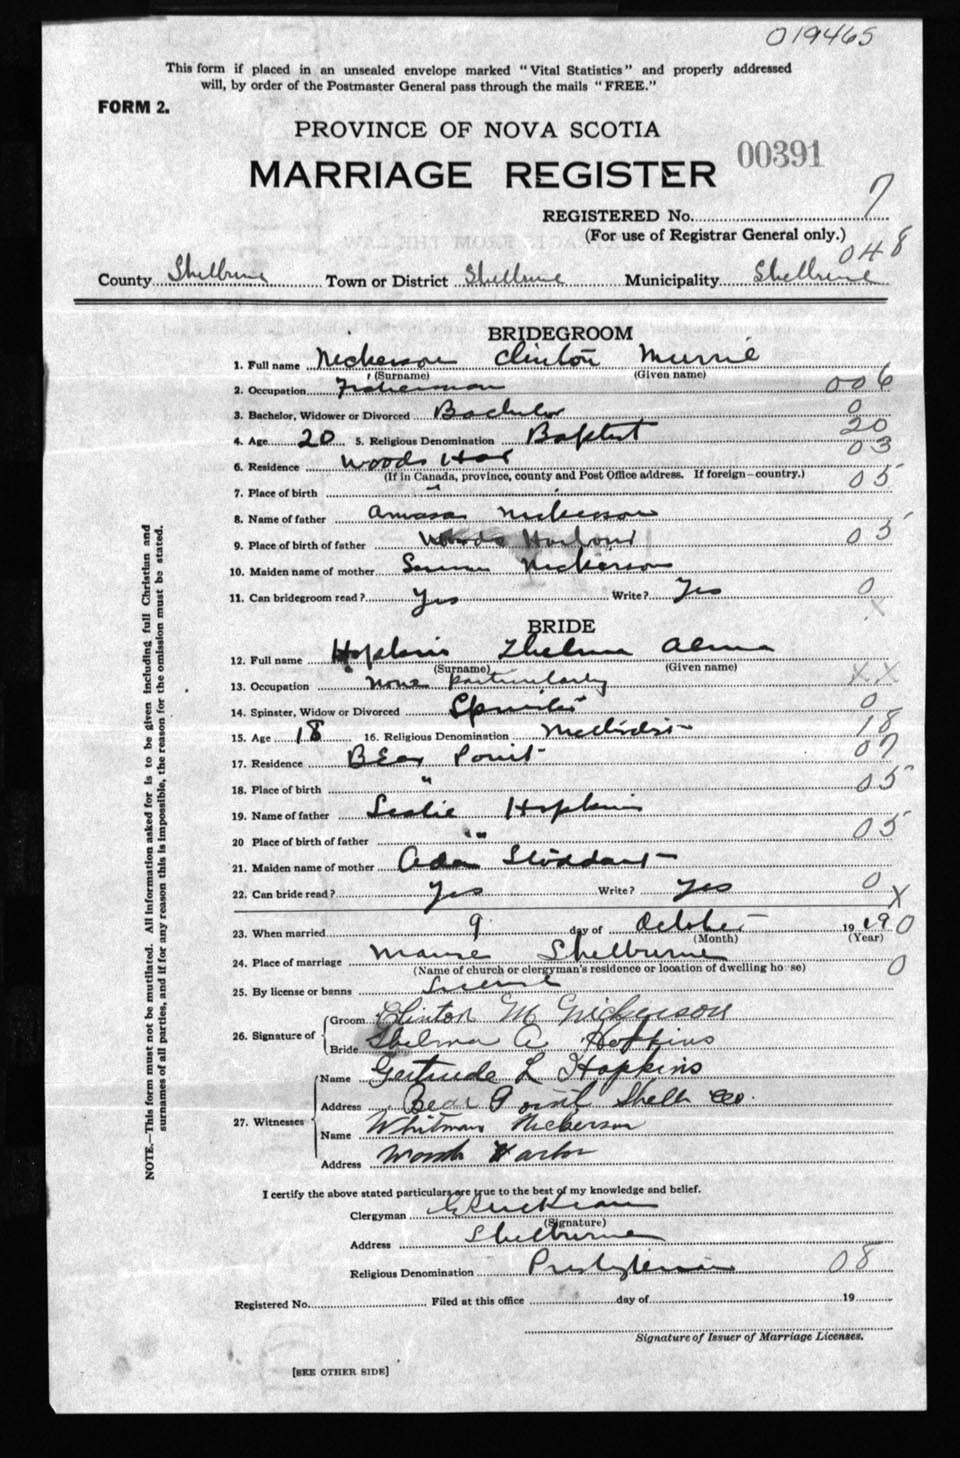 019465
This form if placed in an unsealed envelope marked "Vital Statistics" and properly addressed
will, by order of the Postmaster General pass through the mails "FREE."
FORM 2.
PROVINCE OF NOVA SCOTIA
MARRIAGE REGISTER 00391
REGISTERED No. 7
(For use of Registrar General only.)
048
County Shelburne Town or District Shelburne Municipality Shelburne
BRIDEGROOM
1. Full name Nickerson Clinton
(Surname) (Given name)
2. Occupation Fisherman 006
3. Bachelor, Widower or Divorced Bachelor 0
4. Age 20 5. Religious Denomination Baptist 20
6. Residence Woods Har 03
(If in Canada, province, county and Post Office address. If foreign—country.)
7. Place of birth " 05
8. Name of father Amasa Nickerson
9. Place of birth of father Woods Harbour 05
10. Maiden name of mother Nickerson
11. Can bridegroom read? Yes Write? Yes 0
x
BRIDE
12. Full name Hopkins Thelma Alma
(Surname) (Given name)
13. Occupation none particularly xx
14. Spinster, Widow or Divorced Spinster 0
15. Age 18 16. Religious Denomination Methodist 18
17. Residence BEar Point 07
18. Place of birth " 05
19. Name of father Leslie Hopkins
20 Place of birth of father " 05
21. Maiden name of mother Ada Stoddart
22. Can bride read? Yes Write? Yes 0
x
23. When married 9 day of October 1919 0
(Month) (Year)
24. Place of marriage Manse Shelburne 0
(Name of church or clergyman's residence or location of dwelling house)
25. By license or banns License
26. Signature of Groom Clinton M Nickerson
Bride Thelma A Hopkins
27. Witnesses Name Gertrude L Hopkins
Address Bear Point Shelb Co.
Name Whitman Nickerson
Address Woods Harbor
I certify the above stated particulars are true to the best of my knowledge and belief.
Clergyman
(Signature)
Address Shelburne
Religious Denomination Presbyterian 08
Registered No. Filed at this office day of 19
Signature of Issuer of Marriage Licenses.
[SEE OTHER SIDE]
NOTE.—This form must not be mutilated. All information asked for is to be given including full Christian and
surnames of all parties, and if for any reason this is impossible, the reason for the omission must be stated.